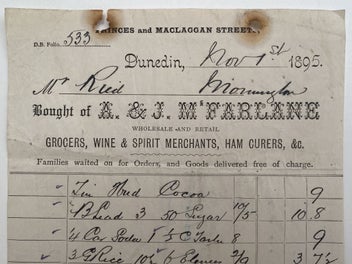 PRINCES and MACLAGGAN STREETS,
D.B. Folio. 533
Dunedin, Novr 1st 1895.
Mr Ried Mornington
Bought of A. & J. McFARLANE
WHOLESALE AND RETAIL
GROCERS, WINE & SPIRIT MERCHANTS, HAM CURERS, &c.
Families waited on for Orders, and Goods delivered free of charge.
" Tin Cocoa 9
" 3 50 Sugar 10/5 10.8
" 4 8 9
" 3 Rice 10 6 2/9 3 7½